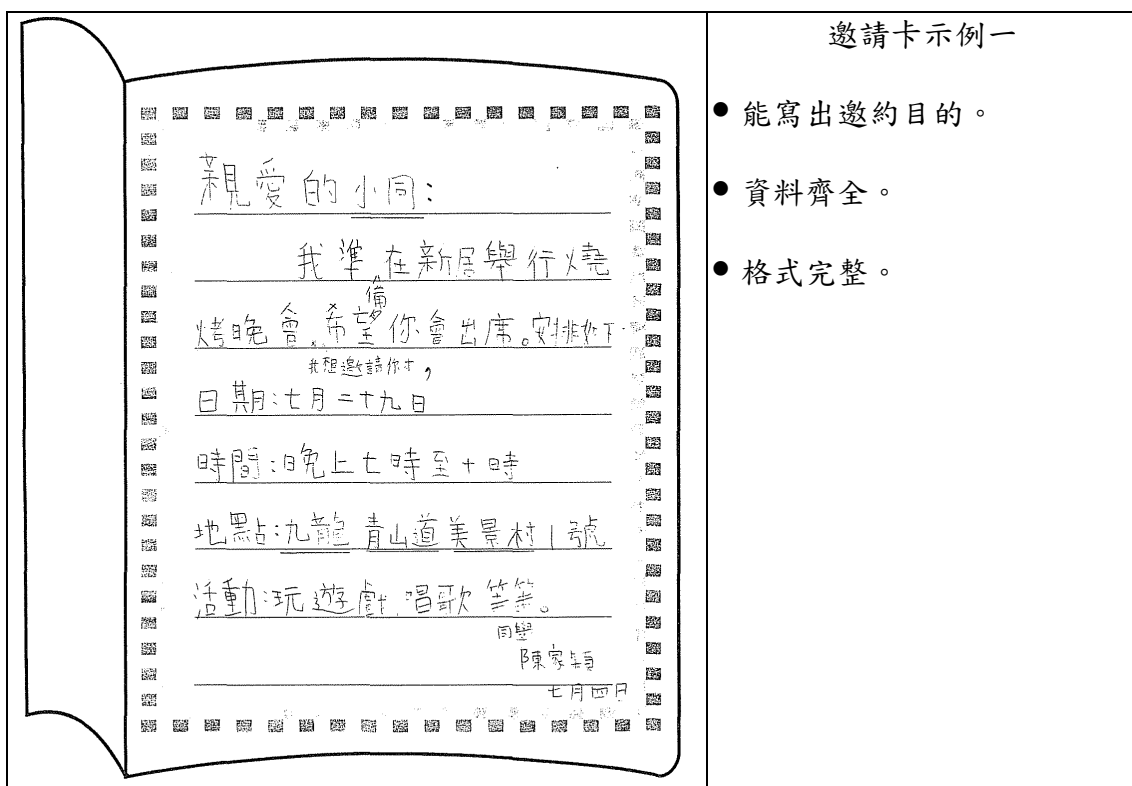 親愛的小同：
我準在新居舉行燒
備
烤晚會、希望你會出席。安排如下
我想邀請你才，
日期：七月二十九日
時間：晚上七時至十時
地點：九龍青山道美景村1號
活動：玩遊戲、唱歌等等。
同學
陳家穎
七月四日
邀請卡示例一
● 能寫出邀約目的。
● 資料齊全。
● 格式完整。